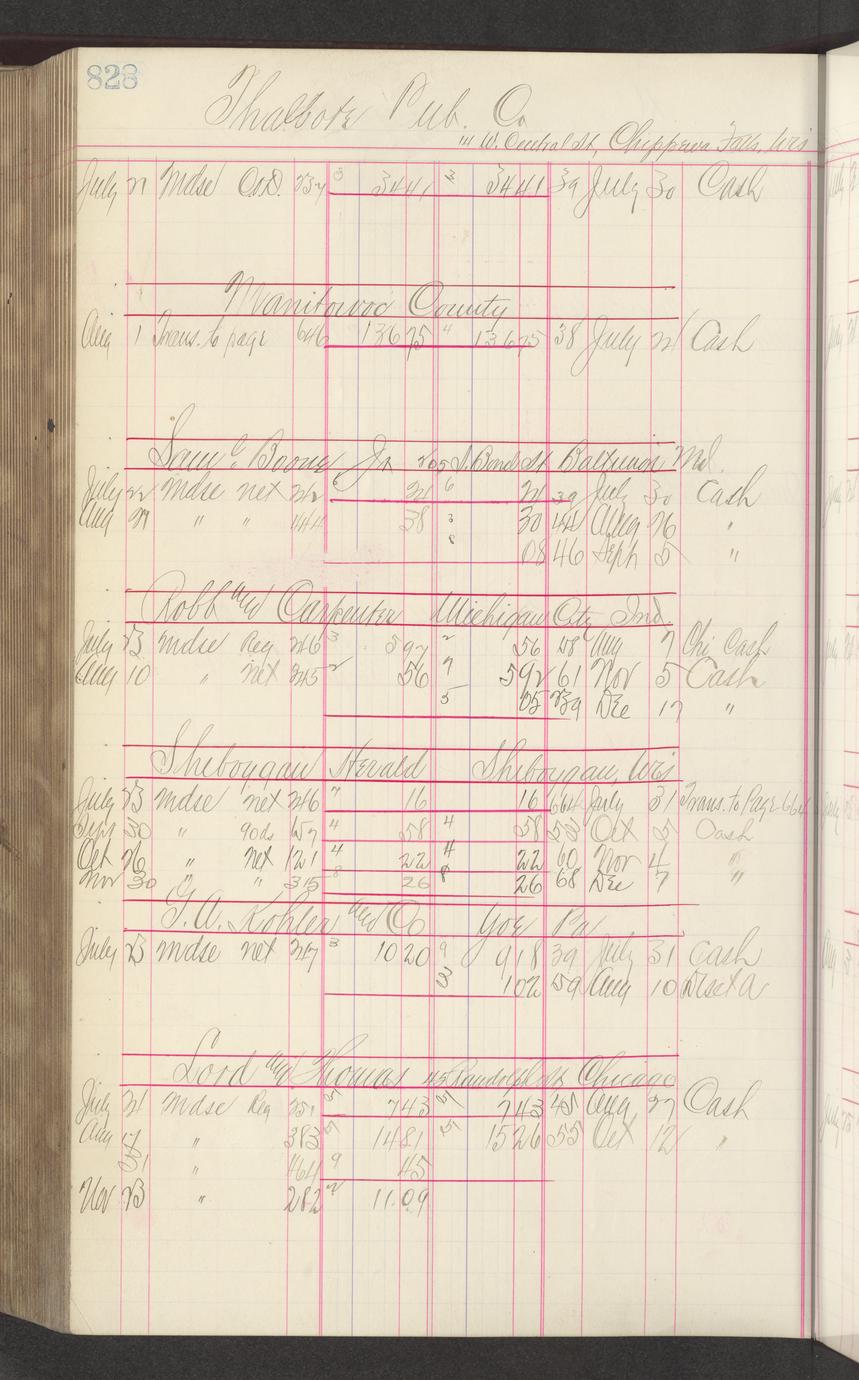 828
Pub. Co
W. Central St, Chippewa Falls, Wis
July 21 Mdse 237 3 3441 3 3441 39 July 30 Cash
Manitowoc County
Aug 1 Trans. to page 646 13675 4 13675 38 July 21 Cash
Saml C Boone Jr 205 S. Bond St Baltimore Md.
July 22 Mdse net 6 21 6 21 39 July 30 Cash
Aug 27 " " 144 38 3 30 144 Aug 26 "
8 08 46 Sept 5 "
Robb and Carpenter Michigan City Ind.
July 23 Mdse Reg 246 3 592 2 56 48 Aug 7 Chi Cash
Aug 10 " net 345 2 56 7 592 61 Nov 5 Cash
5 05 239 Dec 17 "
Sheboygan Herald Sheboygan, Wis
July 23 Mdse net 246 7 16 16 664 July 31 Trans. to Page 664
Sept 30 " 90 ds 157 4 58 4 58 53 Oct 5 Cash
Oct 26 " net 121 4 22 4 22 60 Nov 4 "
Nov 30 " " 315 8 26 8 26 68 Dec 7 "
G. A. Kohler and Co Yoe Pa
July 23 Mdse net 247 3 1020 9 918 39 July 31 Cash
3 102 59 Aug 10
Lord and Thomas 45 Randolph St Chicago
July 24 Mdse Reg 251 5 743 5 743 45 Aug 27 Cash
Aug " 383 5 1481 5 1526 55 Oct 12 "
31 " 464 9 45
Nov 23 " 282 2 11.09